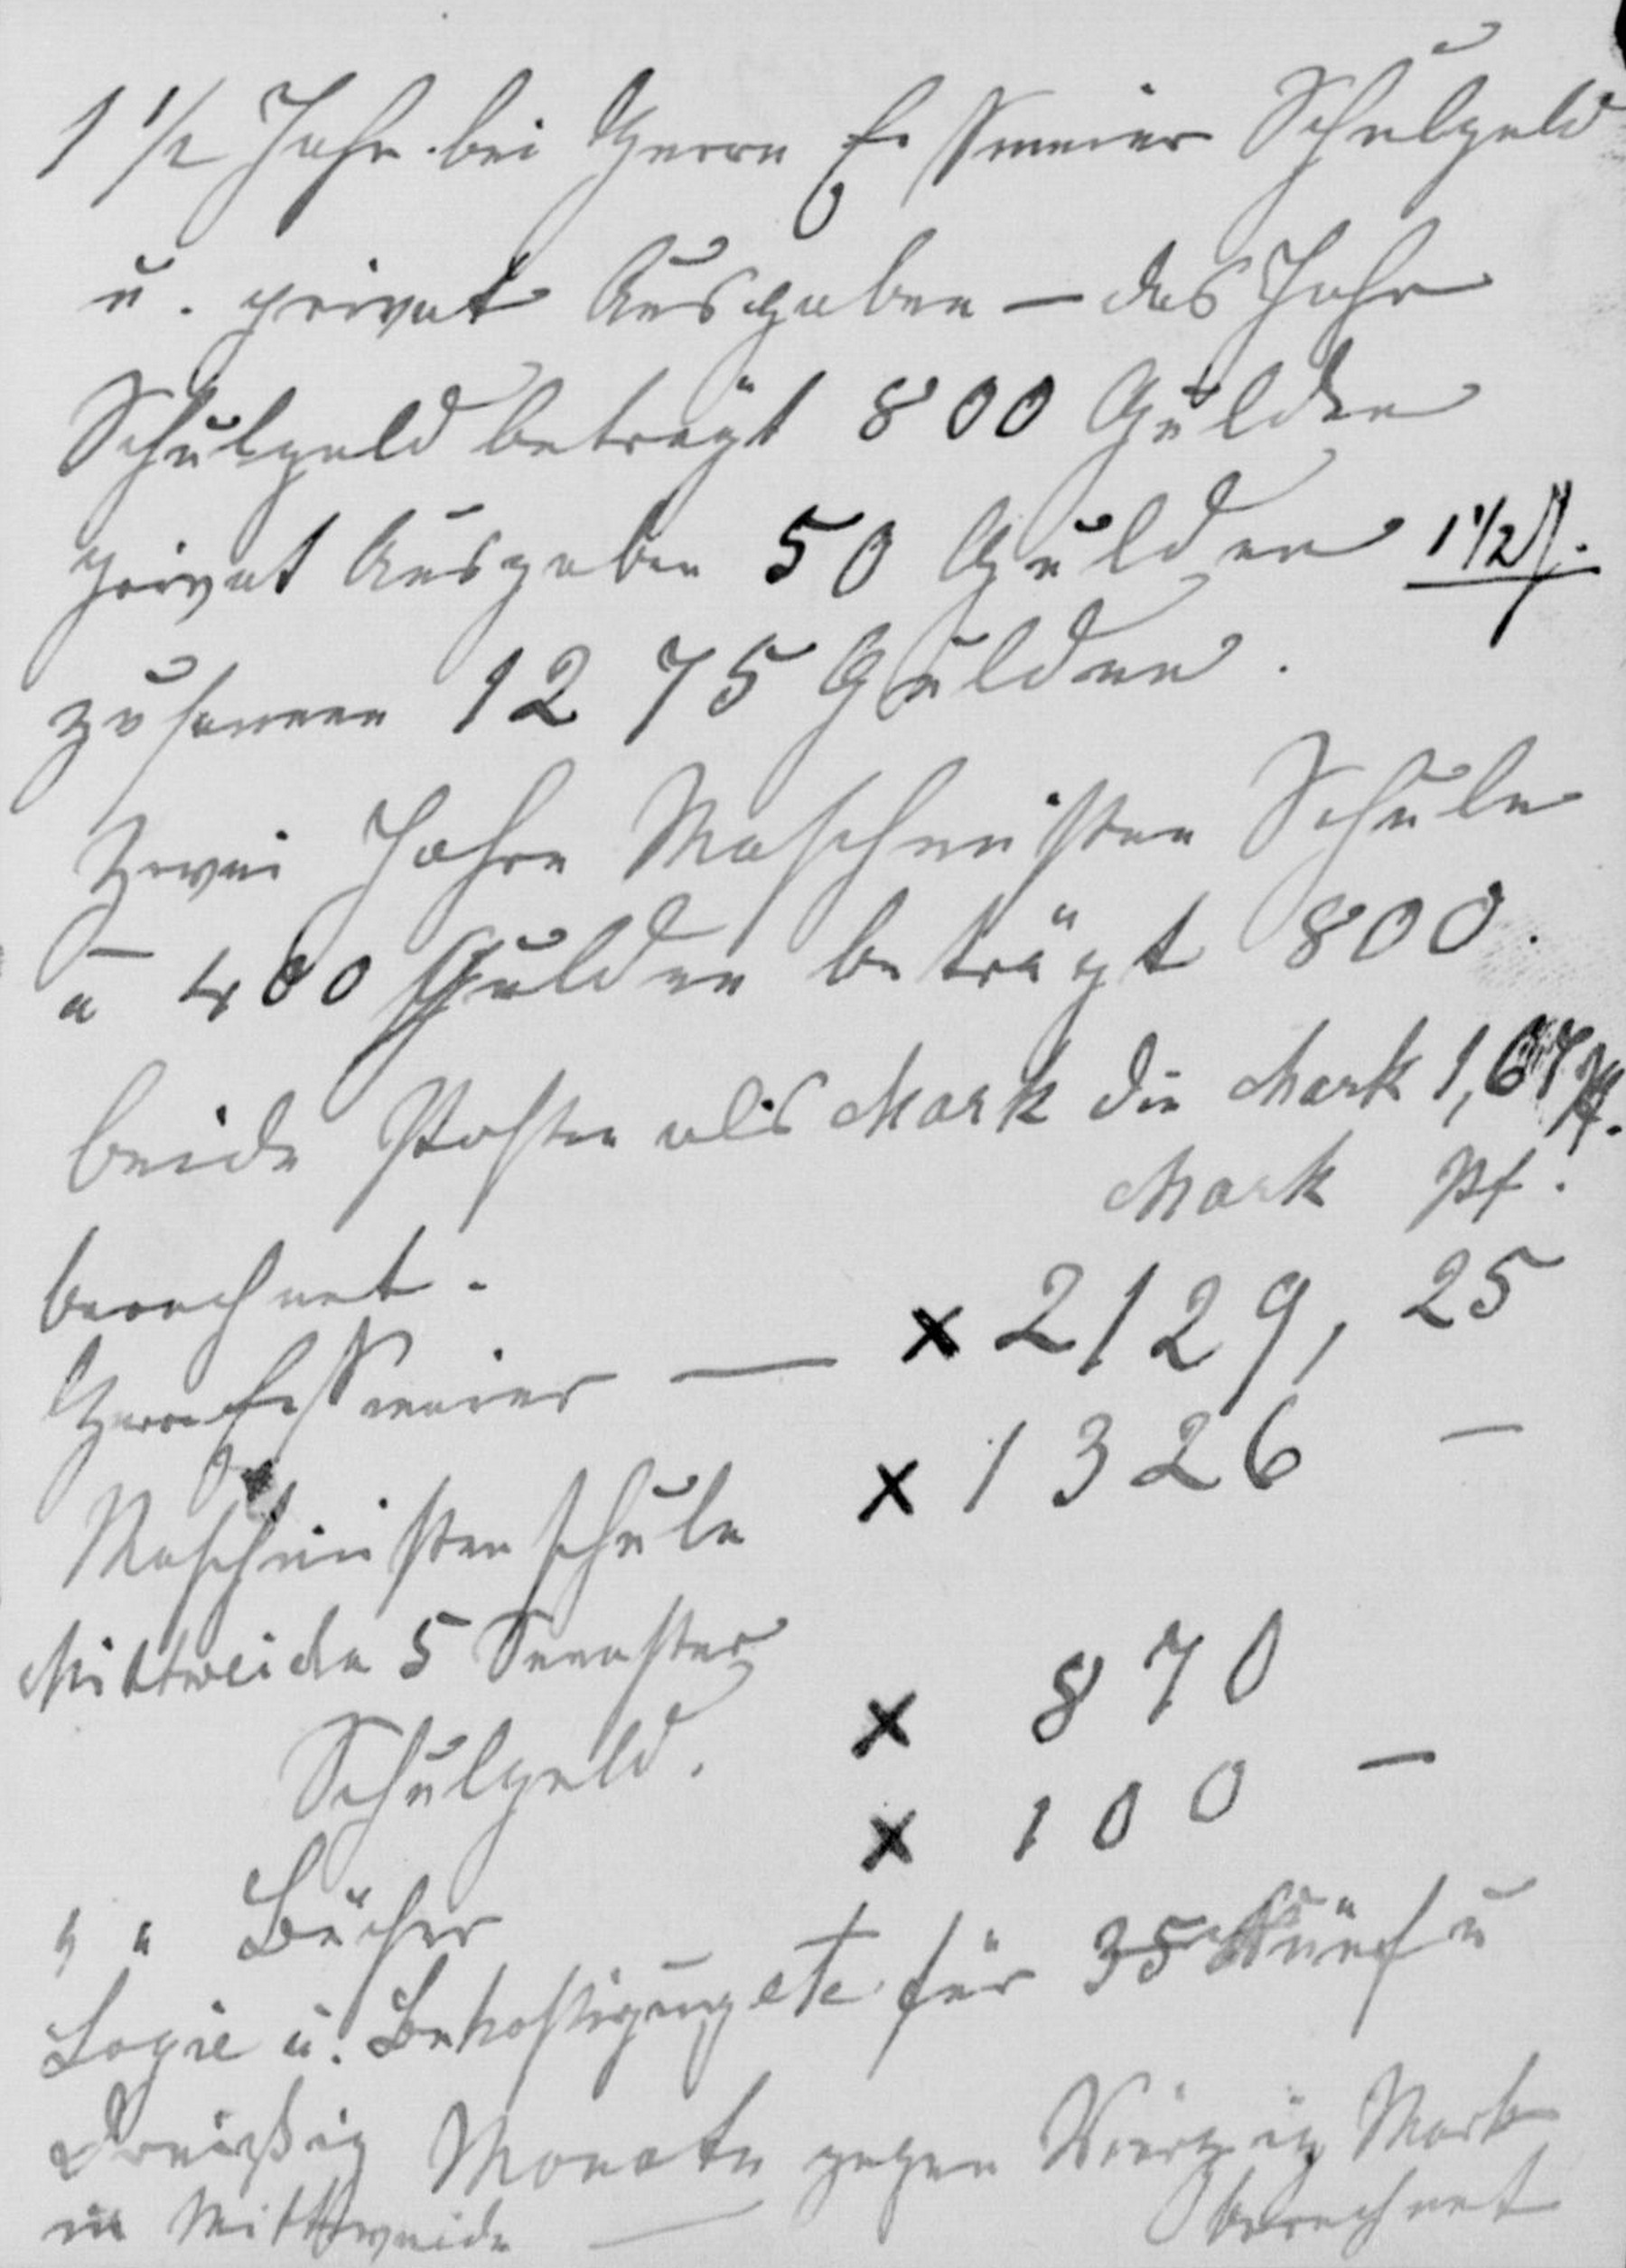 1 1/2 Jahr bei Herrn Essmeier Schulgeld
u. privat Ausgaben — das Jahr
Schulgeld beträgt 800 Gulden
privat Ausgaben 50 Gulden 1 1/2 J.
zusammen 1275 Gulden.
Zwei Jahre Maschinisten Schule
a 400 Gulden beträgt 800.
beide Posten als Mark die Mark 1,67 Pf.
Mark Pf.
berechnet.
Herrn Essmeier — x 2129, 25
Maschinistenschule x 1326 —
Mittweida 5 Semester
Schulgeld. x 870
x 100 —
" " Bücher
Logie u. Beköstigung etc für 35 Fünf u
Dreißig Monate gegen Vierzig Mark
in Mittweida — berechnet